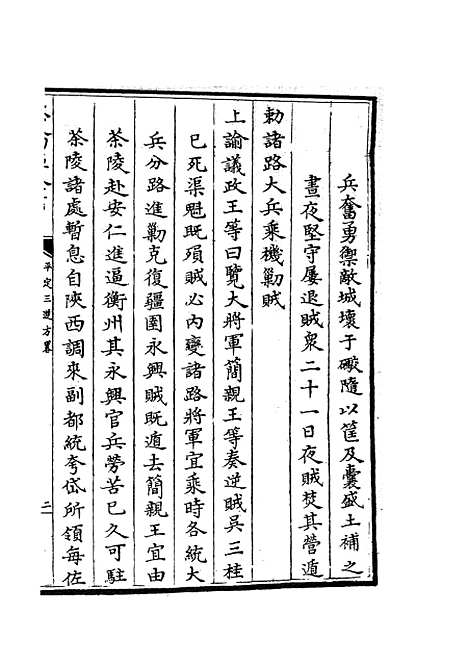 兵奮勇禦敵城壞于礮隨以筐及囊盛土補之
晝夜堅守屢退賊衆二十一日夜賊焚其營遁
勅諸路大兵乘機勦賊
上諭議政王等曰覽大將軍簡親王等奏逆賊吳三桂
已死渠魁既殞賊必内變諸路將軍宜乘時各統大
兵分路進勦克復疆圉永興賊既遁去簡親王宜由
茶陵赴安仁進逼衡州其永興官兵勞苦已久可駐
茶陵諸處暫息自陝西調來副都統夸岱所領每佐
平定三逆方畧
二